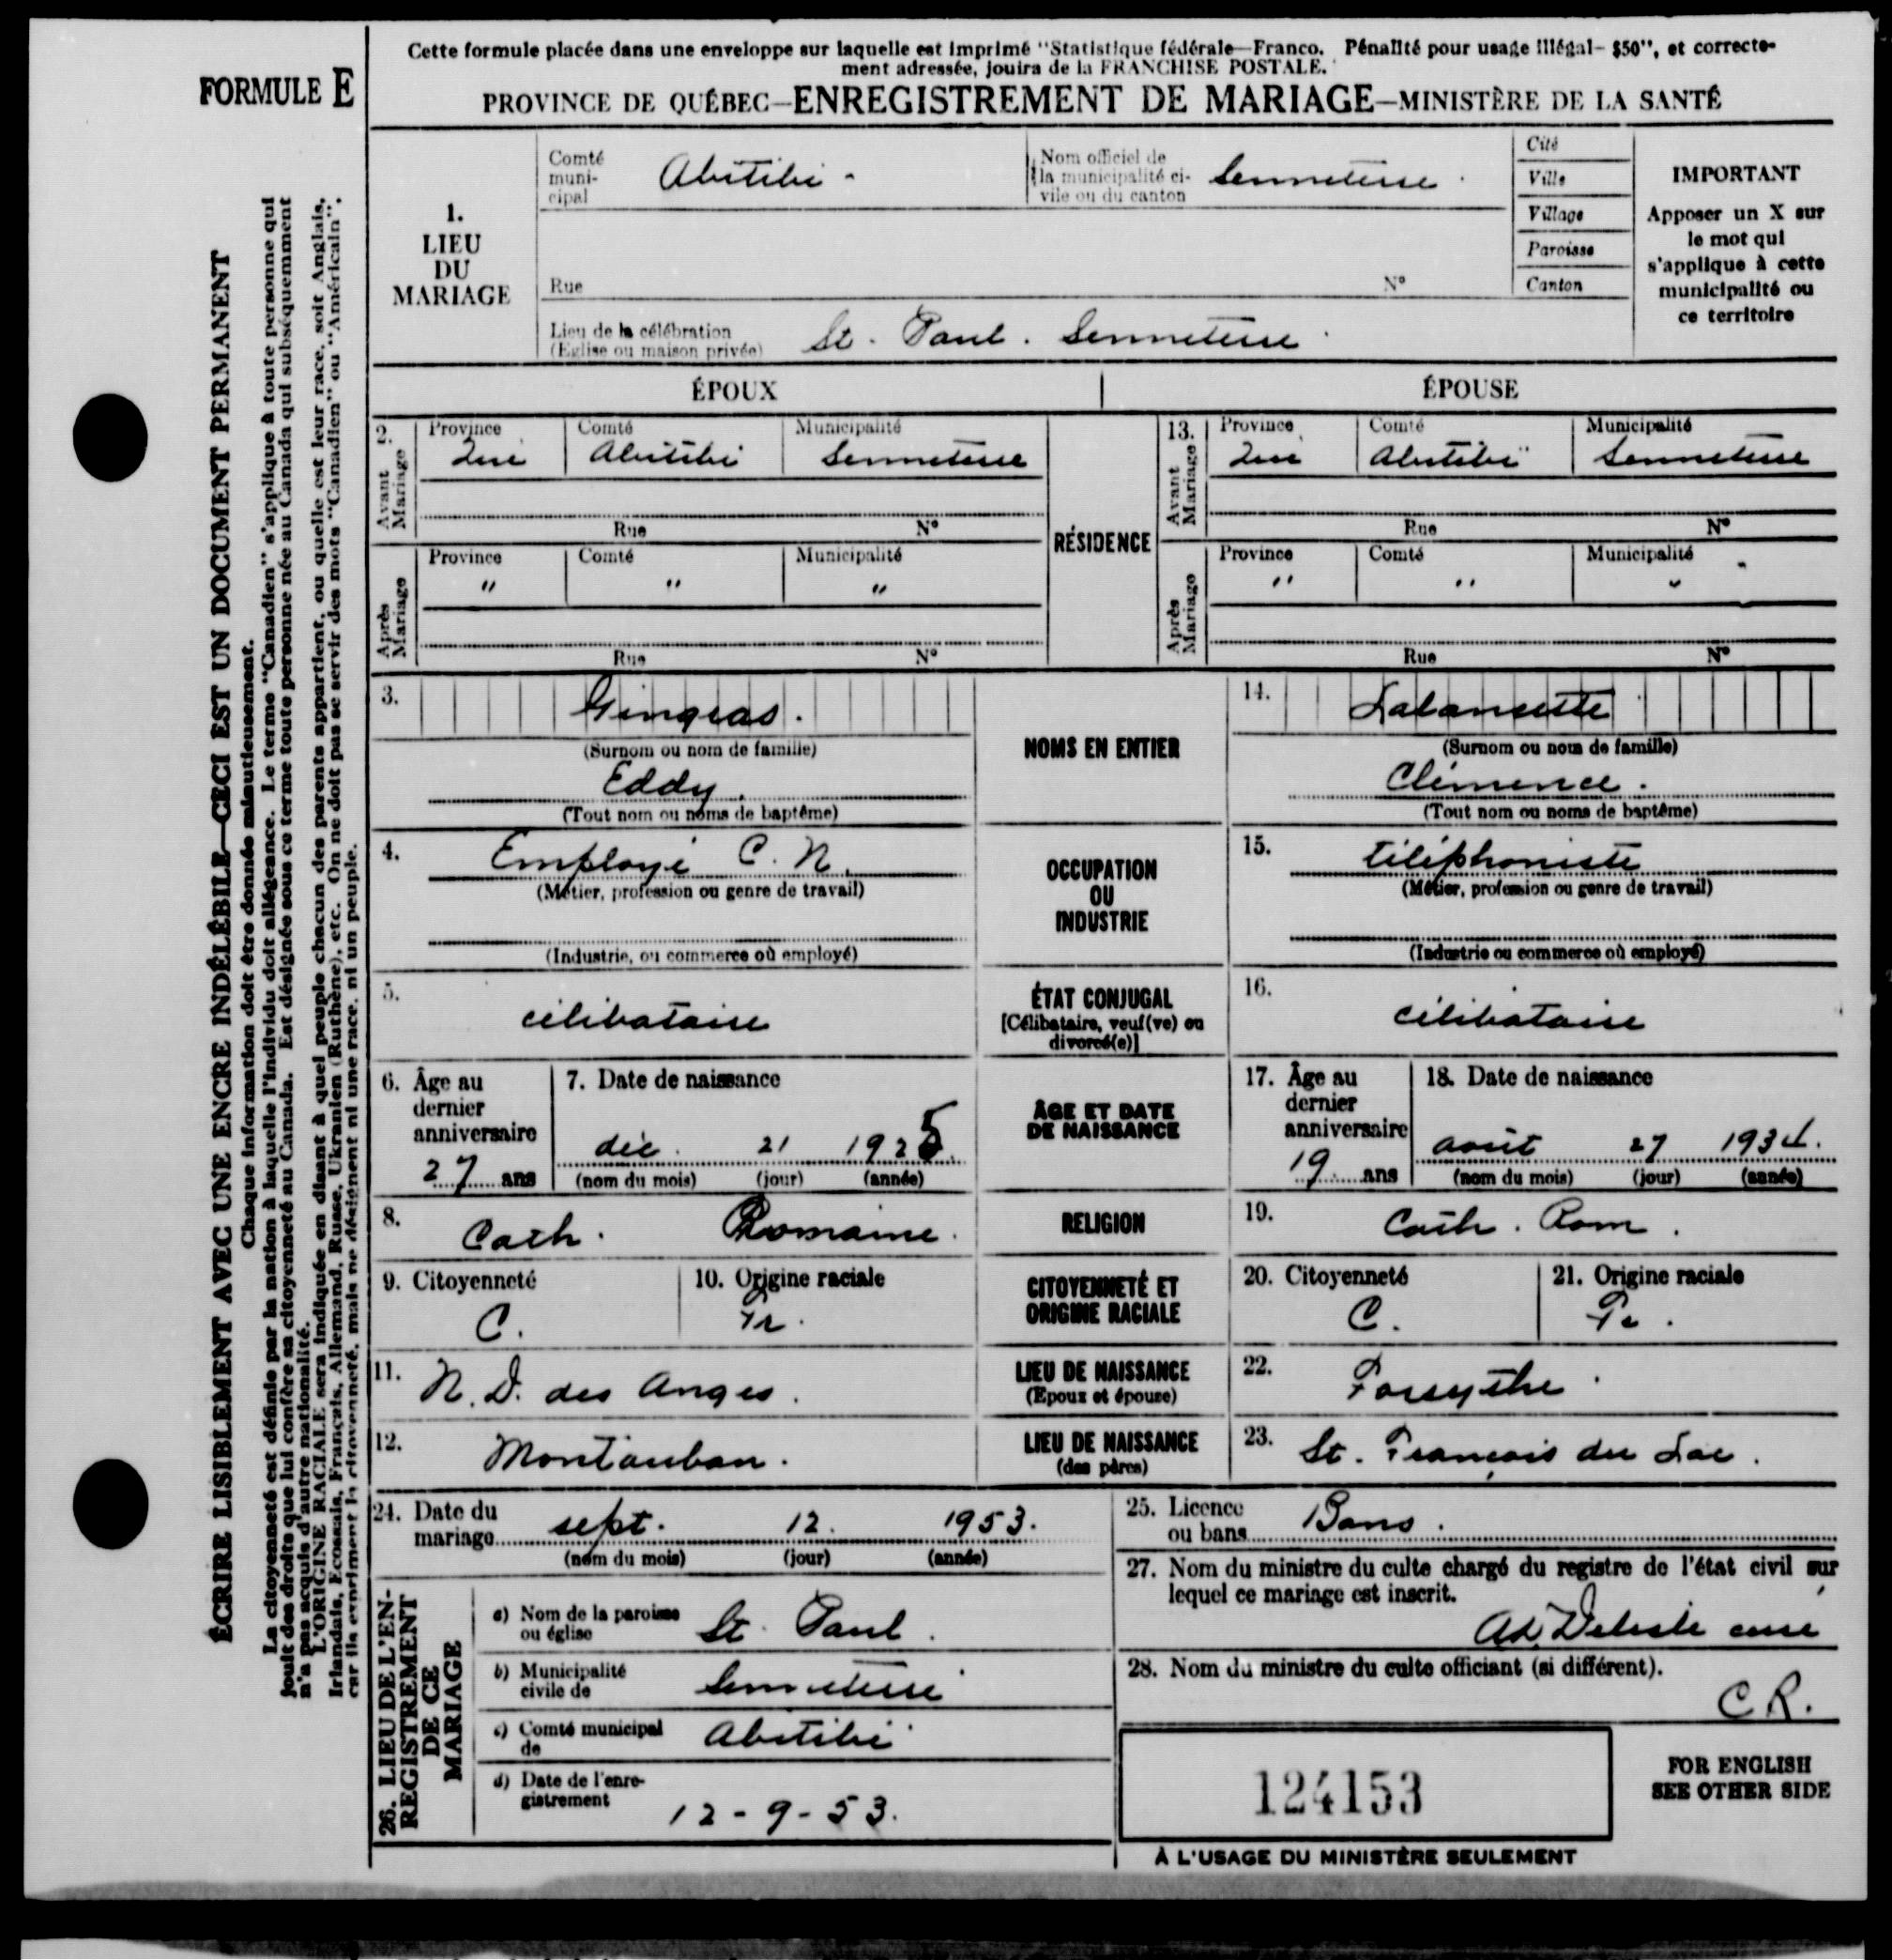 Cette formule placée dans une enveloppe sur laquelle est imprimé "Statistique fédérale—Franco. Pénalité pour usage illégal- $50", et correcte-
ment adressée, jouira de la FRANCHISE POSTALE.
FORMULE E
PROVINCE DE QUÉBEC—ENREGISTREMENT DE MARIAGE—MINISTÈRE DE LA SANTÉ
ÉCRIRE LISIBLEMENT AVEC UNE ENCRE INDÉLÉBILE—CECI EST UN DOCUMENT PERMANENT
Chaque information doit être donnée minutieusement.
La citoyenneté est définie par la nation à laquelle l'individu doit allégeance. Le terme "Canadien" s'applique à toute personne qui
jouit des droits que lui confère sa citoyenneté au Canada. Est désignée sous ce terme toute personne née au Canada qui subséquemment
n'a pas acquis d'autre nationalité.
L'ORIGINE RACIALE sera indiquée en disant à quel peuple chacun des parents appartient, ou quelle est leur race, soit Anglais,
Irlandais, Ecossais, Français, Allemand, Russe, Ukranien (Ruthène), etc. On ne doit pas se servir des mots "Canadien" ou "Américain",
car ils expriment la citoyenneté, mais ne désignent ni une race, ni un peuple.
1.
LIEU
DU
MARIAGE
Comté
muni-
cipal
Abitibi -
Nom officiel de
la municipalité ci-
vile ou du canton
Senneterre
Cité
Ville
Village
Paroisse
Canton
IMPORTANT
Apposer un X sur
le mot qui
s'applique à cette
municipalité ou
ce territoire
Rue N°
Lieu de la célébration
(Eglise ou maison privée)
St. Paul. Senneterre
ÉPOUX ÉPOUSE
2. Avant Mariage
Province Comté Municipalité
Que Abitibi Senneterre
Rue N°
RÉSIDENCE
13. Avant Mariage
Province Comté Municipalité
Que Abitibi Senneterre
Rue N°
Après Mariage
Province Comté Municipalité
" " "
Rue N°
Après Mariage
Province Comté Municipalité
" " "
Rue N°
3. Gingras.
(Surnom ou nom de famille)
Eddy.
(Tout nom ou noms de baptême)
NOMS EN ENTIER
14. Labansette
(Surnom ou nom de famille)
Clémence.
(Tout nom ou noms de baptême)
4. Employé C. N.
(Métier, profession ou genre de travail)
(Industrie, ou commerce où employé)
OCCUPATION
OU
INDUSTRIE
15. téléphoniste
(Métier, profession ou genre de travail)
(Industrie ou commerce où employé)
5. célibataire
ÉTAT CONJUGAL
[Célibataire, veuf(ve) ou
divorcé(e)]
16. célibataire
6. Âge au
dernier
anniversaire
27 ans
7. Date de naissance
déc. 21 1925
(nom du mois) (jour) (année)
ÂGE ET DATE
DE NAISSANCE
17. Âge au
dernier
anniversaire
19 ans
18. Date de naissance
août 27 1934.
(nom du mois) (jour) (année)
8. Cath. Romaine.
RELIGION
19. Cath. Rom.
9. Citoyenneté
C.
10. Origine raciale
Fr.
CITOYENNETÉ ET
ORIGINE RACIALE
20. Citoyenneté
C.
21. Origine raciale
Fr.
11. N. D. des Anges.
LIEU DE NAISSANCE
(Epoux et épouse)
22. Forsythe
12. Montauban.
LIEU DE NAISSANCE
(des pères)
23. St. François du Lac.
24. Date du
mariage
sept. 12. 1953.
(nom du mois) (jour) (année)
25. Licence
ou bans
Bans.
26. LIEU DE L'EN-
REGISTREMENT
DE CE
MARIAGE
a) Nom de la paroisse
ou église
St. Paul.
b) Municipalité
civile de
Senneterre
c) Comté municipal
de
Abitibi
d) Date de l'enre-
gistrement
12-9-53.
27. Nom du ministre du culte chargé du registre de l'état civil sur
lequel ce mariage est inscrit.
Ad. Delisle curé
28. Nom du ministre du culte officiant (si différent).
C R.
124153
FOR ENGLISH
SEE OTHER SIDE
À L'USAGE DU MINISTÈRE SEULEMENT